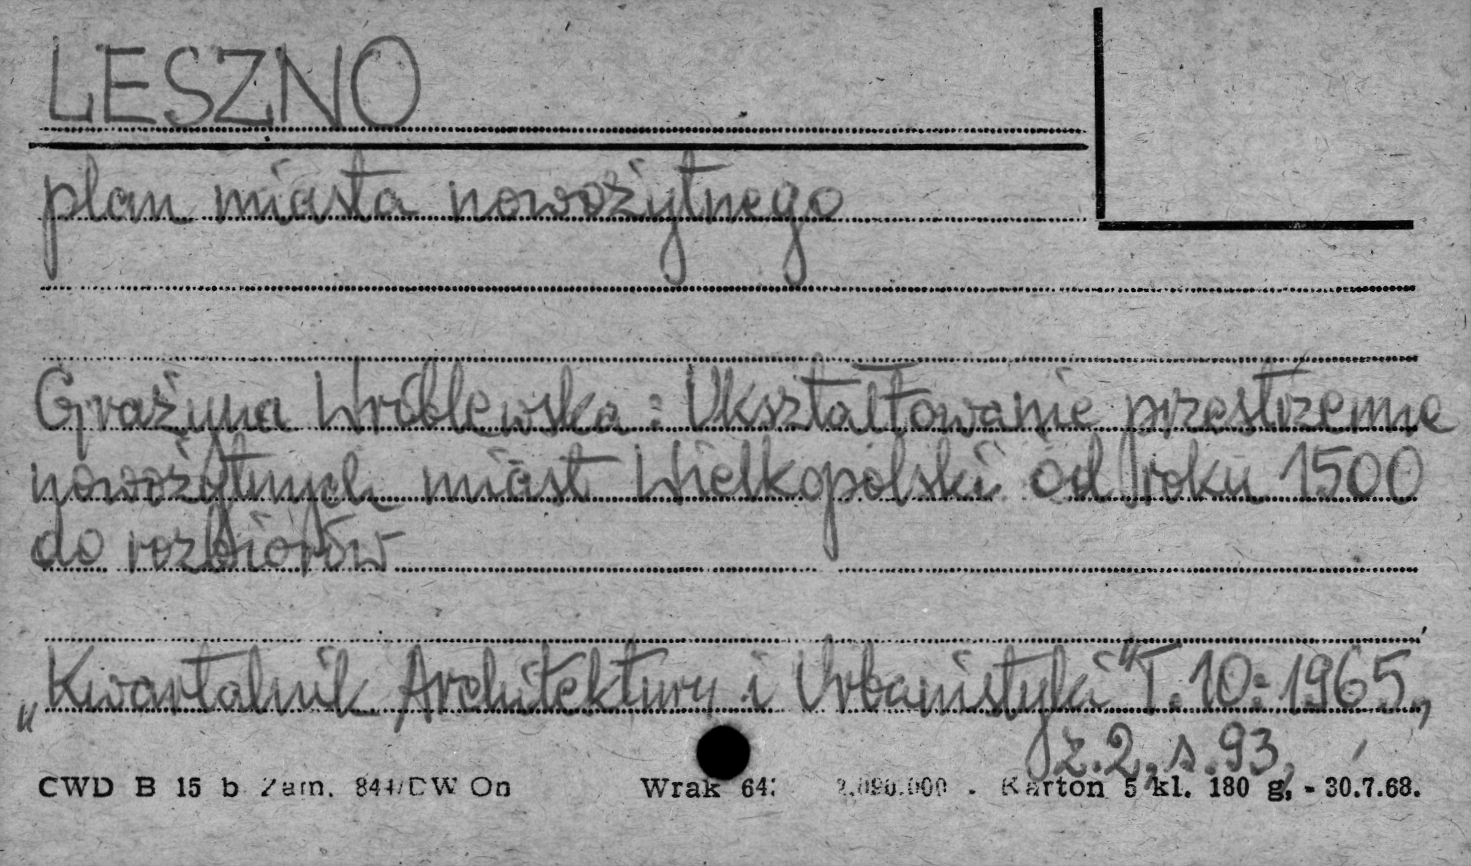 LESZNO
plan miasta nowożytnego
Grażyna Wróblewska: Ukształtowanie przestrzenne
nowożytnych miast Wielkopolski od roku 1500
do rozbiorów
„Kwartalnik Architektury i Urbanistyki" T. 10: 1965,
z. 2, s. 93,
CWD B 15 b Zam. 844/CW On Wrak 2.090.000 - Karton 5 kl. 180 g, - 30.7.68.